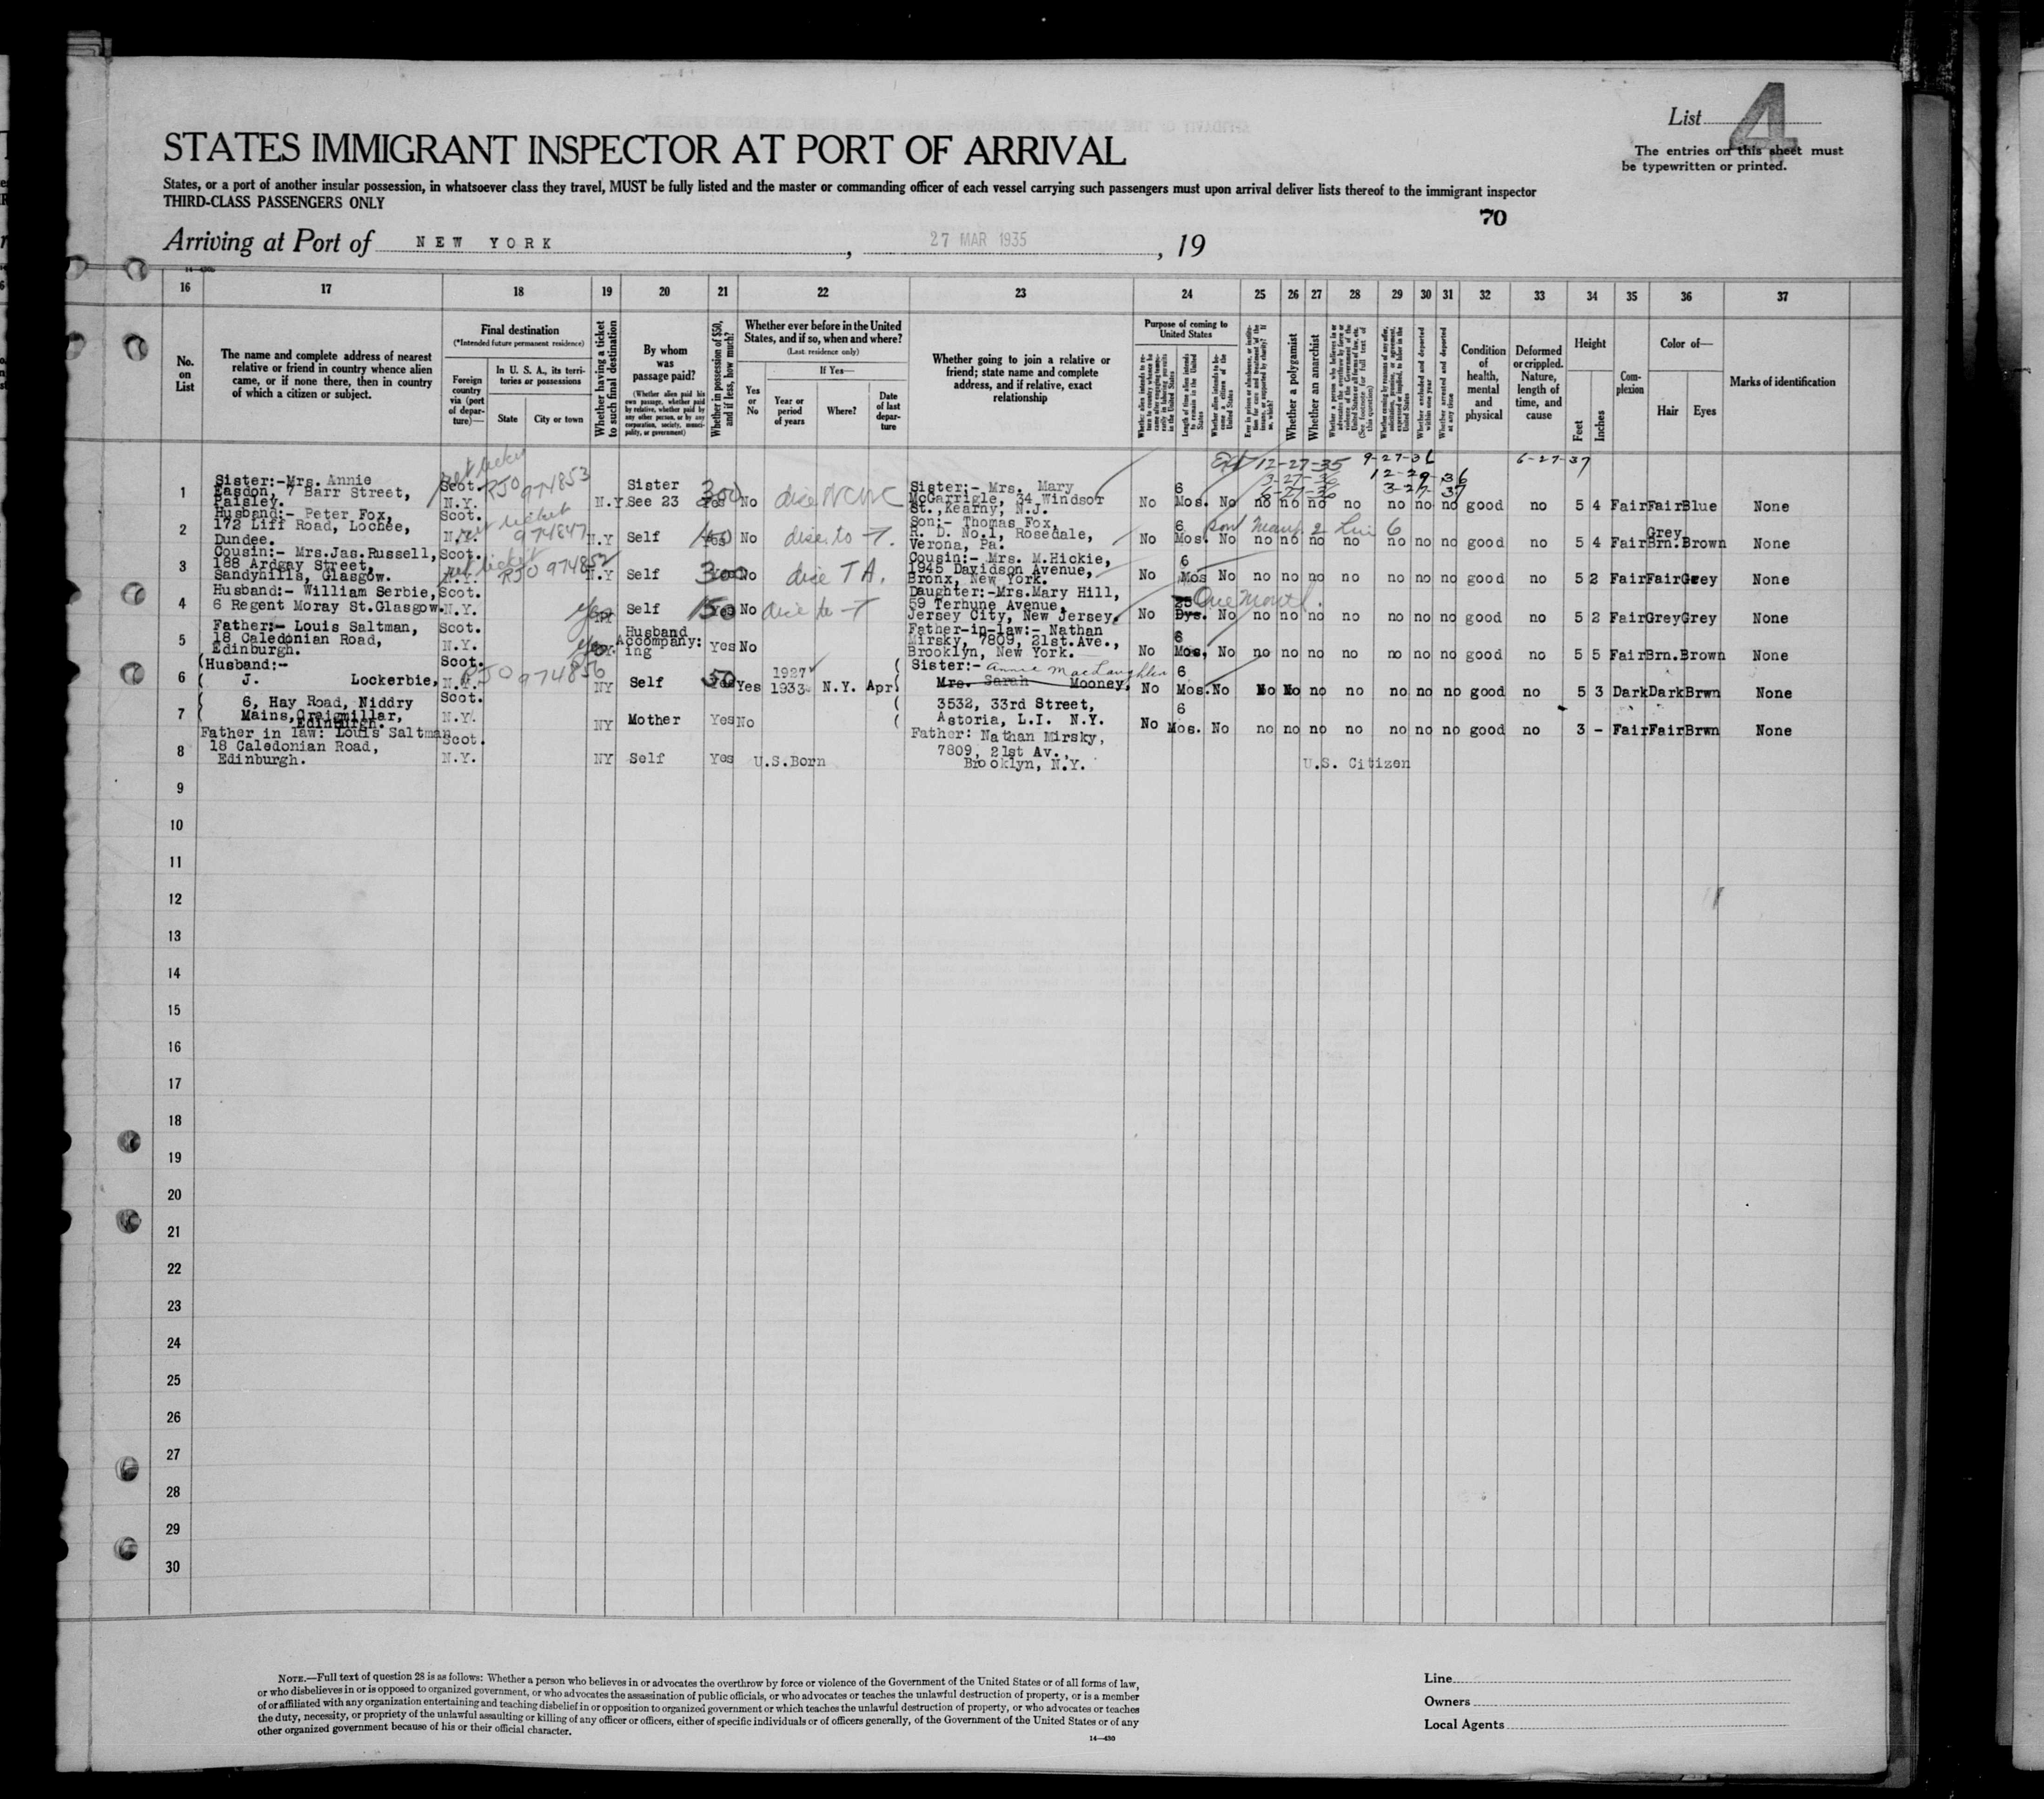 List 4
The entries on this sheet must
be typewritten or printed.
STATES IMMIGRANT INSPECTOR AT PORT OF ARRIVAL
States, or a port of another insular possession, in whatsoever class they travel, MUST be fully listed and the master or commanding officer of each vessel carrying such passengers must upon arrival deliver lists thereof to the immigrant inspector
THIRD-CLASS PASSENGERS ONLY
70
Arriving at Port of NEW YORK, 27 MAR 1935, 19
16 17 18 19 20 21 22 23 24 25 26 27 28 29 30 31 32 33 34 35 36 37
No. on List
The name and complete address of nearest
relative or friend in country whence alien
came, or if none there, then in country
of which a citizen or subject.
Final destination
(*Intended future permanent residence)
Foreign country via (port of departure)—
In U. S. A., its territories or possessions
State
City or town
Whether having a ticket to such final destination
By whom was passage paid?
(Whether alien paid his own passage, whether paid by relative, whether paid by any other person, or by any corporation, society, municipality, or government)
Whether in possession of $50, and if less, how much?
Whether ever before in the United States, and if so, when and where?
(Last residence only)
Yes or No
If Yes—
Year or period of years
Where?
Date of last departure
Whether going to join a relative or
friend; state name and complete
address, and if relative, exact
relationship
Purpose of coming to United States
Length of time alien intends to remain in the United States
Whether a polygamist
Whether an anarchist
Condition of health, mental and physical
Deformed or crippled. Nature, length of time, and cause
Height
Feet
Inches
Complexion
Color of—
Hair
Eyes
Marks of identification
Ext 12-27-35 9-27-36 6-27-37
3-27-36 12-29-36
6-27-36 3-27-37
1 Sister:-Mrs. Annie
Easdon, 7 Barr Street,
Paisley.
Scot. N.Y. RJO 974853 N.Y. Sister See 23 300 Yes No
Sister:- Mrs. Mary
McGarrigle, 34 Windsor
St., Kearny, N.J.
No 6 Mos. No no no no no no no no good no 5 4 Fair Fair Blue None
2 Husband:- Peter Fox,
172 Liff Road, Lochee,
Dundee.
Scot. N.Y. ret ticket 974847 N.Y Self 150 Yes No
Son:- Thomas Fox,
R. D. No.1, Rosedale,
Verona, Pa.
No 6 Mos. No no no no no no no no good no 5 4 Fair Grey Brn. Brown None
3 Cousin:- Mrs.Jas.Russell,
188 Ardgay Street,
Sandyhills, Glasgow.
Scot. N.Y. ret ticket RJO 974852 N.Y Self 300 No
Cousin:- Mrs. M.Hickie,
1845 Davidson Avenue,
Bronx, New York.
No 6 Mos No no no no no no no no good no 5 2 Fair Fair Grey None
4 Husband:- William Serbie,
6 Regent Moray St.Glasgow.
Scot. N.Y. yes NY Self 150 Yes No
Daughter:-Mrs.Mary Hill,
59 Terhune Avenue,
Jersey City, New Jersey.
No 25 Dys. One Month. No no no no no no no no good no 5 2 Fair Grey Grey None
5 Father:- Louis Saltman,
18 Caledonian Road,
Edinburgh.
Scot. N.Y. yes Husband Accompany:ing Yes No
Father-in-law:- Nathan
Mirsky, 7809, 21st.Ave.,
Brooklyn, New York.
No 6 Mos. No no no no no no no no good no 5 5 Fair Brn. Brown None
6 (Husband:-
J. Lockerbie,
Scot. N.Y. RJO 974856 NY Self 50 Yes Yes 1927 1933 N.Y. Apr
Sister:- Annie MacLaughlin
Mrs. Sarah Mooney,
No 6 Mos. No No No no no no no no good no 5 3 Dark Dark Brwn None
7 6, Hay Road, Niddry
Mains, Craigmillar,
Edinburgh.
Scot. N.Y. NY Mother Yes No
3532, 33rd Street,
Astoria, L.I. N.Y.
No 6 Mos. No no no no no no no no good no 3 - Fair Fair Brwn None
8 Father in law: Louis Saltman
18 Caledonian Road,
Edinburgh.
Scot. N.Y. NY Self Yes U.S.Born
Father: Nathan Mirsky,
7809, 21st Av.,
Brooklyn, N.Y.
U.S. Citizen
9
10
11
12
13
14
15
16
17
18
19
20
21
22
23
24
25
26
27
28
29
30
NOTE.—Full text of question 28 is as follows: Whether a person who believes in or advocates the overthrow by force or violence of the Government of the United States or of all forms of law,
or who disbelieves in or is opposed to organized government, or who advocates the assassination of public officials, or who advocates or teaches the unlawful destruction of property, or is a member
of or affiliated with any organization entertaining and teaching disbelief in or opposition to organized government or which teaches the unlawful destruction of property, or who advocates or teaches
the duty, necessity, or propriety of the unlawful assaulting or killing of any officer or officers, either of specific individuals or of officers generally, of the Government of the United States or of any
other organized government because of his or their official character.
14—430
Line
Owners
Local Agents